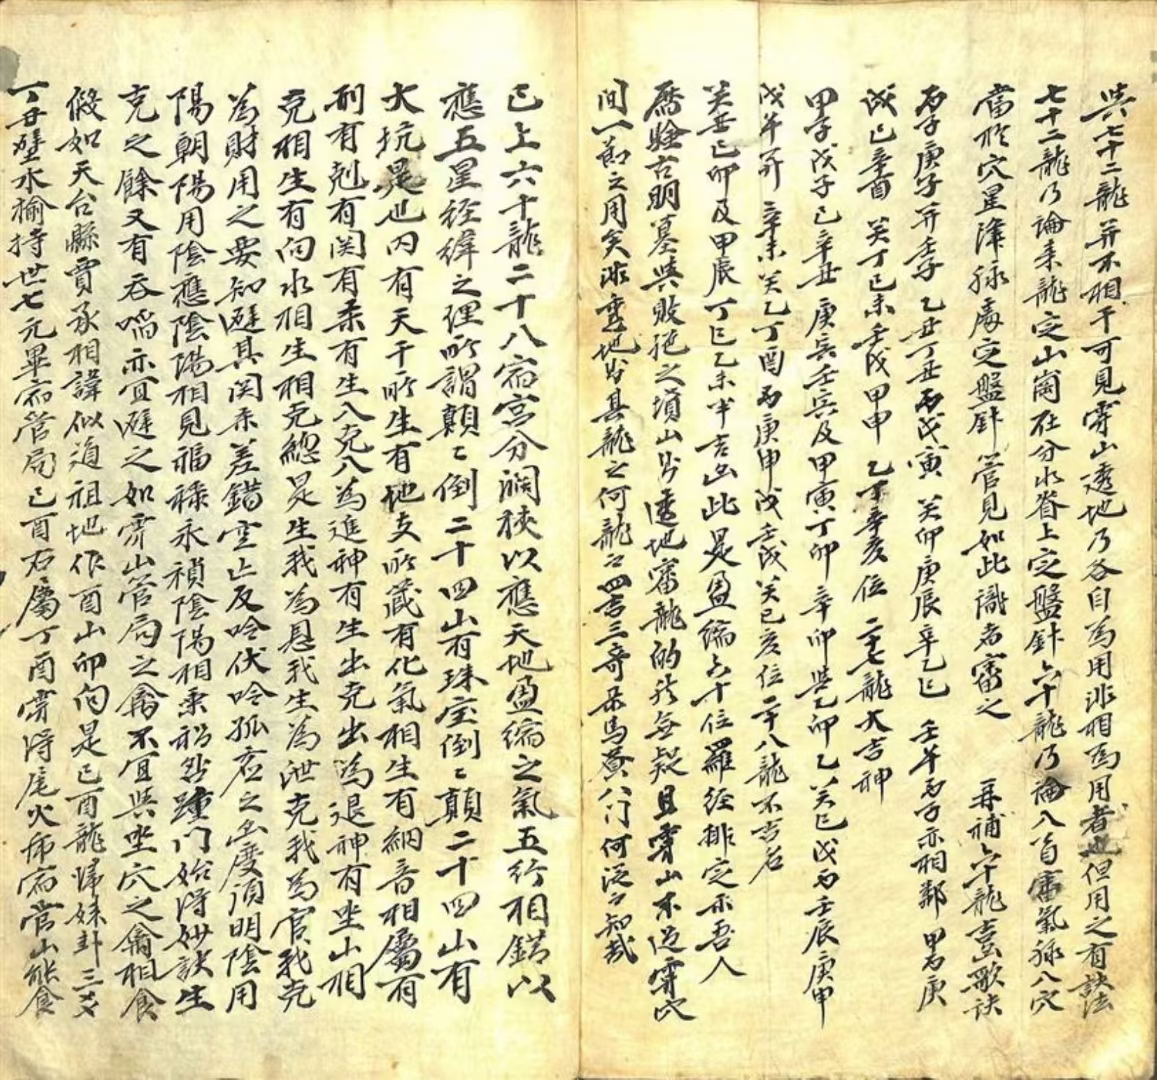 與七十二龍并不相干可見穿山透地乃各自為用非相為用者也但用之有訣法
七十二龍乃論來龍定山崗在分水脊上定盤針六十龍乃論入首審氣脉入穴
當於穴星淳脉處定盤針管見如此識者審之 再補六十龍吉凶歌訣
丙子庚子并壬子 乙丑丁丑丙戊寅 癸卯庚辰辛巳 壬午丙子亦相鄰 甲戊庚
戊巳辛酉 癸丁巳未壬戌甲申 乙亥辛亥位 二七龍大吉神
甲子戊子巳辛丑 庚寅壬寅及甲寅丁卯 辛卯與乙卯乙癸巳戊丙壬辰庚申
戊午并 辛未癸乙丁酉丙庚申戊壬戌癸巳亥位二十八龍不吉名
癸丑巳卯及甲辰丁巳乙未半吉凶此是盈縮六十位羅經排定示吾人
歷驗古明墓與敗絕之墳山皆透地審龍的於無疑且穿山不過穿穴
間一節之用矣非透地皆具龍之何龍以四吉三奇禄馬貴人門何從而知哉
已上六十龍二十八宿宮分濶狹以應天地盈縮之氣五行相錯以
應五星經緯之理所謂顛〻倒二十四山有珠宝倒〻顛二十四山有
大坑是也内有天干所生有地支所藏有化氣相生有納音相屬有
刑有剋有関有柔有生入克入為進神有生出克出為退神有坐山相
克相生有向水相生相克總是生我為恩我生為泄克我為官我克
為財用之要知避其関柔差錯空亡反吟伏吟孤虚之凶度須明陰用
陽朝陽用陰應陰陽相見福祿永禎陰陽相乘禍咎踵門始得妙訣生
克之餘又有吞啗亦宜避之如穿山管局之禽不宜與坐穴之禽相食
假如天台縣賈丞相諱似道祖地作酉山卯向是已酉龍歸妹卦三爻
丁丑壁水㺄持世七元畢宿管局已酉右屬丁酉穿得尾火乕宿管山能食